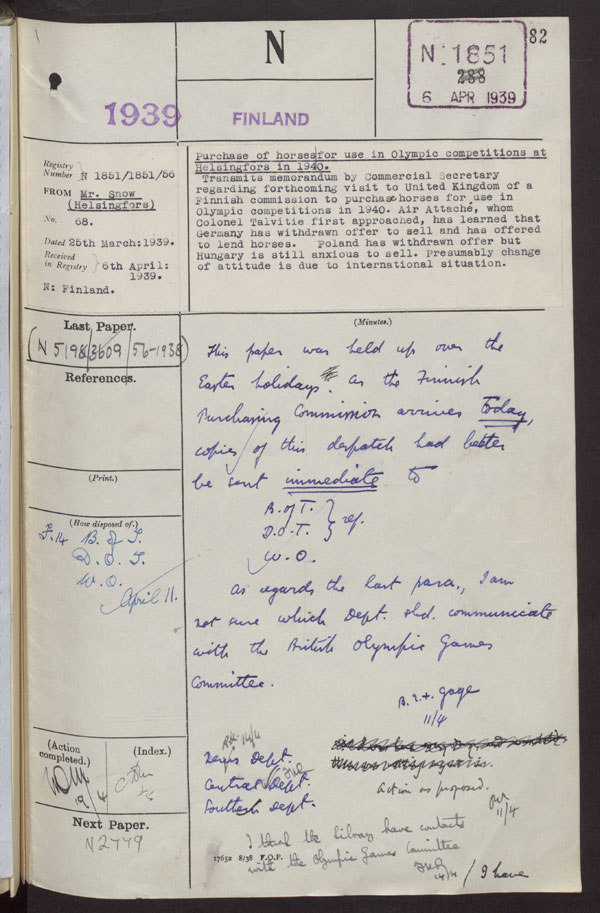 N
82
N 1851
288
6 APR 1939
1939
FINLAND
Registry
Number } N 1851/1851/56
FROM Mr. Snow
(Helsingfors)
No. 68.
Dated 25th March:1939.
Received
in Registry } 6th April:
1939.
N: Finland.
Purchase of horses for use in Olympic competitions at
Helsingfors in 1940.
Transmits memorandum by Commercial Secretary
regarding forthcoming visit to United Kingdom of a
Finnish commission to purchase horses for use in
Olympic competitions in 1940. Air Attaché, whom
Colonel Talvitie first approached, has learned that
Germany has withdrawn offer to sell and has offered
to lend horses. Poland has withdrawn offer but
Hungary is still anxious to sell. Presumably change
of attitude is due to international situation.
Last Paper.
(N 5198/3609/56-1938)
References.
(Print.)
(How disposed of.)
F.14 B. of T.
D. O. T.
W. O.
April 11.
(Action
completed.)
19/4
(Index.)
Next Paper.
N2779
(Minutes.)
This paper was held up over the
Easter holidays. As the Finnish
Purchasing Commission arrives today,
copies of this despatch had better
be sent immediate to
B. of T. } ref.
D.O.T.
W.O.
As regards the last para., I am
not sure which Dept. shd. communicate
with the British Olympic Games
Committee.
B. E. H. Gage
11/4
News Dept.
Central Dept.
Southern Dept.
Action as proposed.
11/4
I think the Library have contacts
with the Olympic Games Committee
14/4
/ I have
17652 8/38 F.O.P.